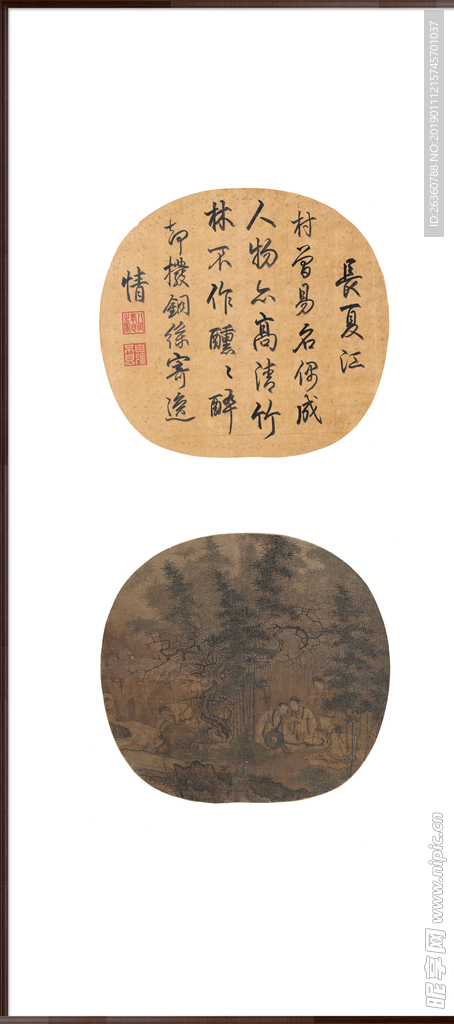 長夏江
村曾易名偶成
人物亦高清竹
林不作醺〻醉
却撥銅絃寄逸
情
ID:26360788 NO:20190111215745701037
昵享网 www.nipic.cn